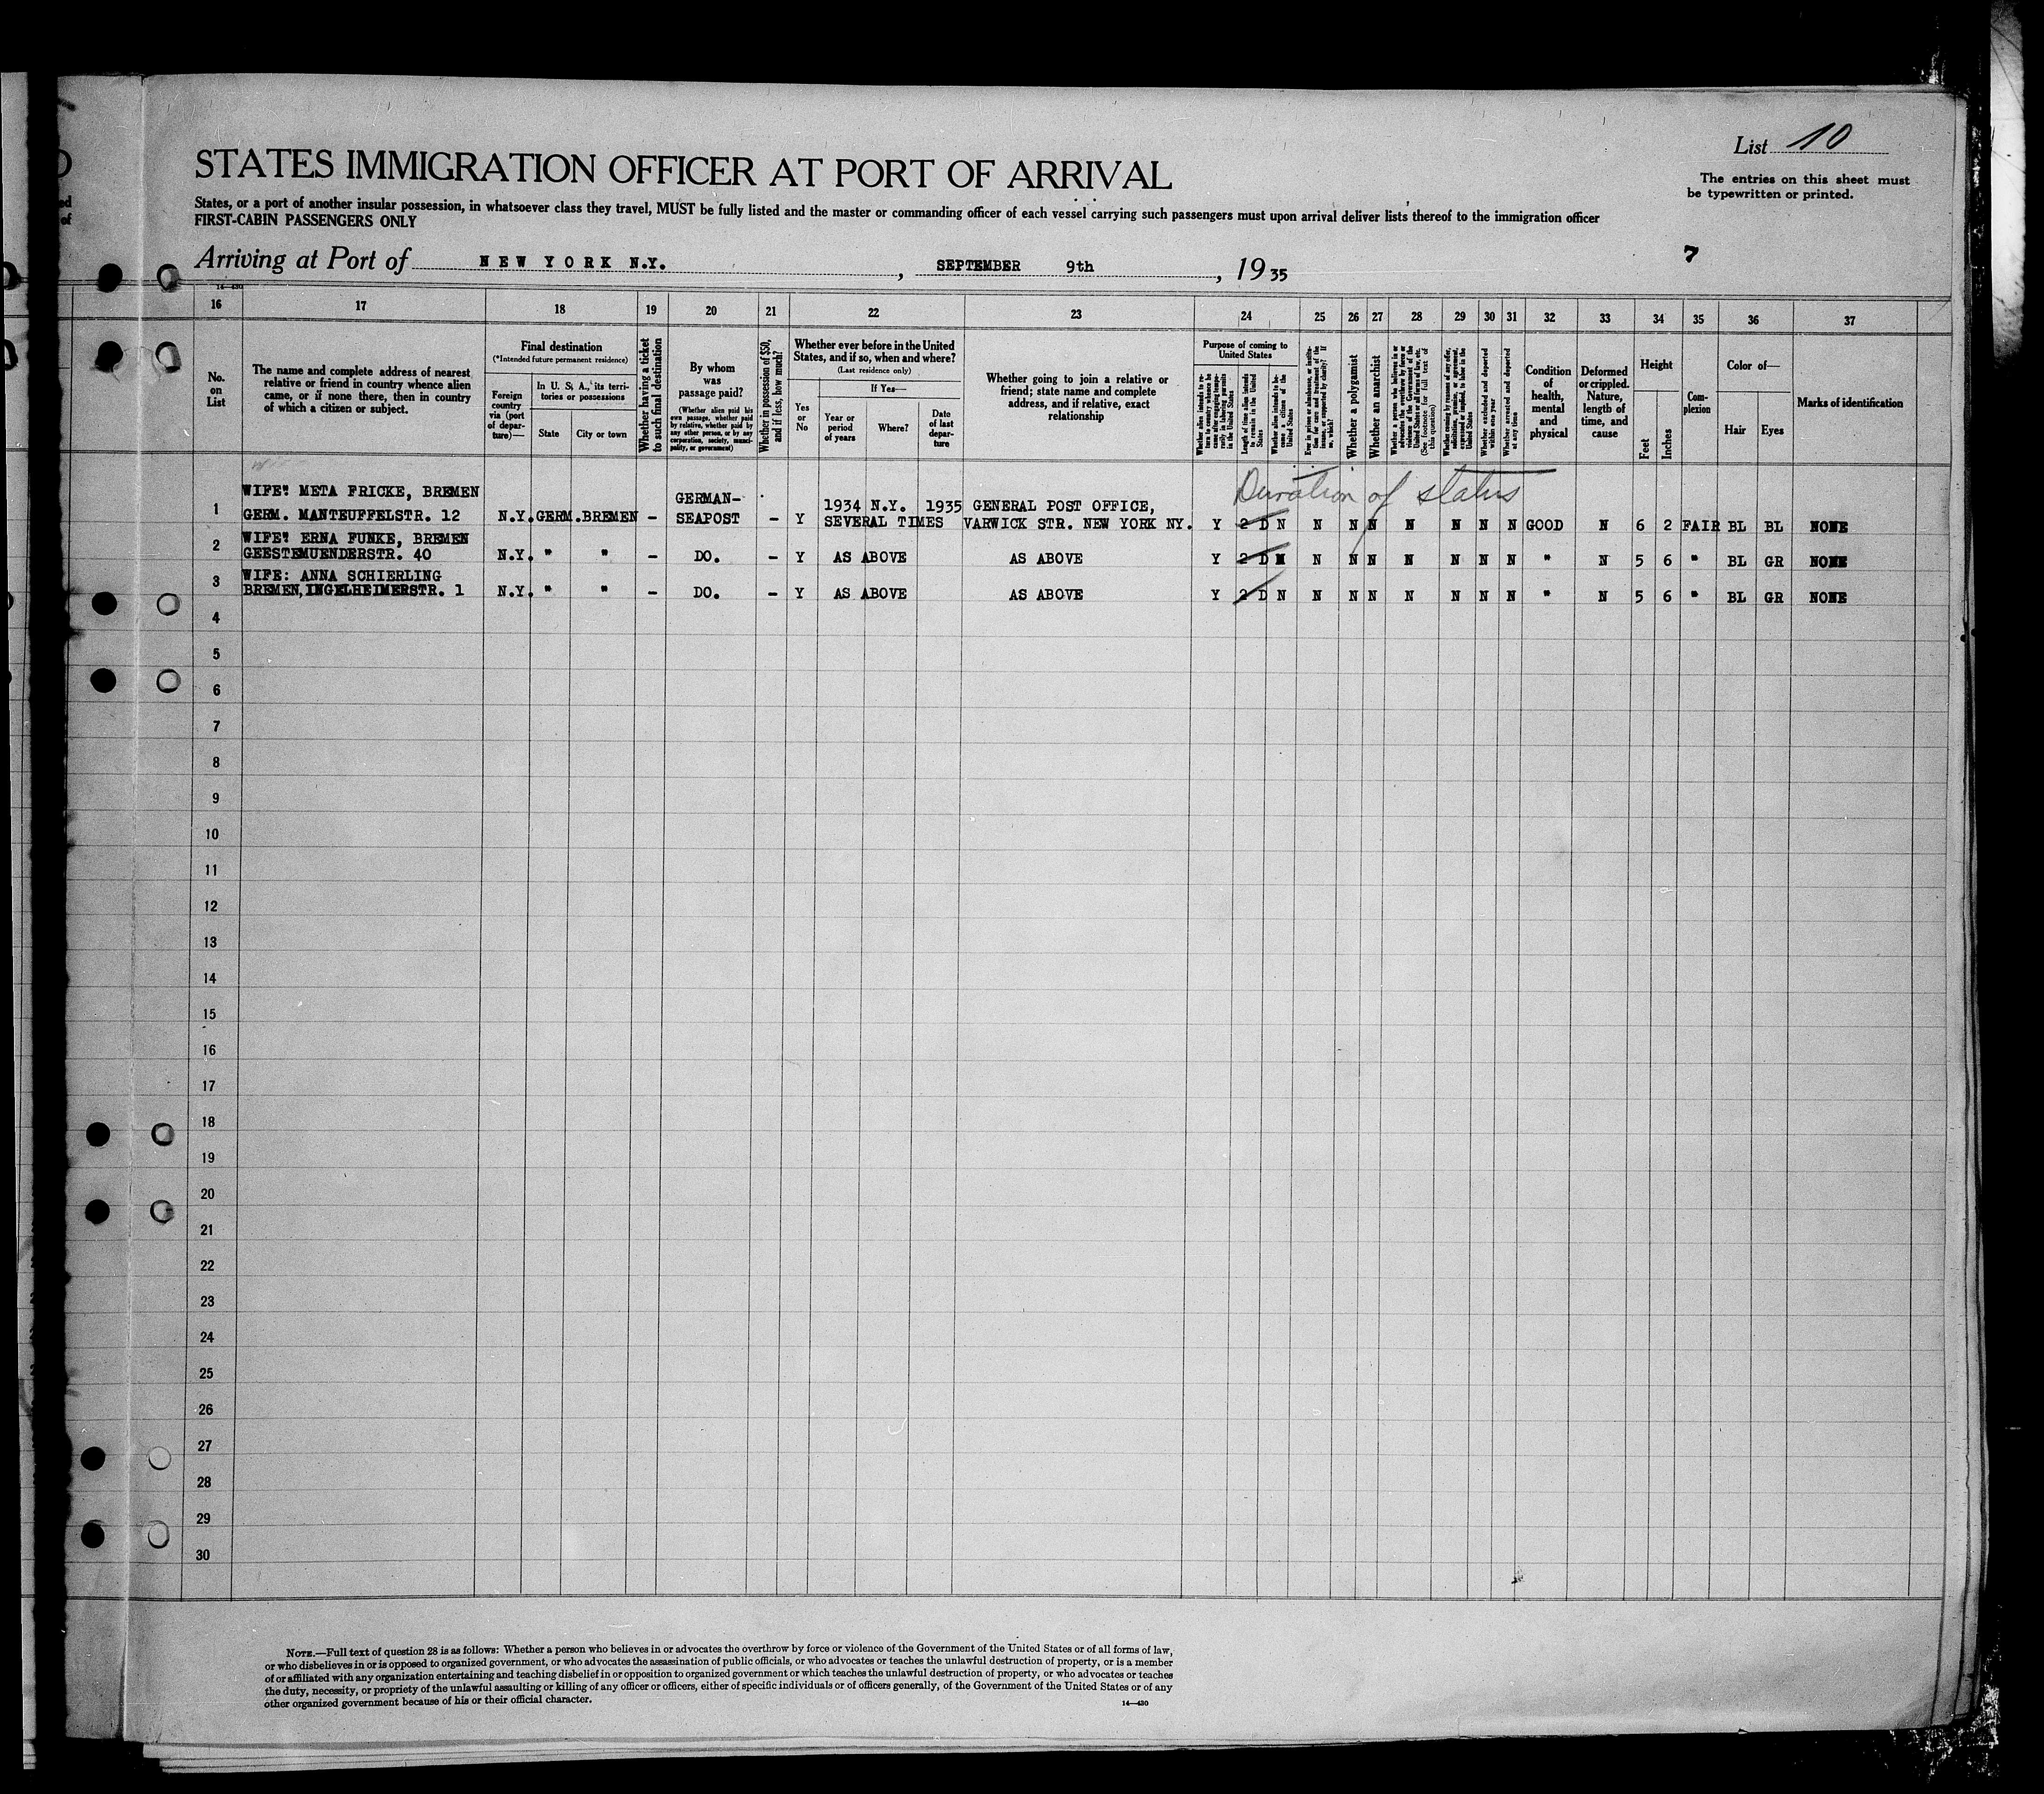 List 10
The entries on this sheet must
be typewritten or printed.
STATES IMMIGRATION OFFICER AT PORT OF ARRIVAL
States, or a port of another insular possession, in whatsoever class they travel, MUST be fully listed and the master or commanding officer of each vessel carrying such passengers must upon arrival deliver lists thereof to the immigration officer
FIRST-CABIN PASSENGERS ONLY
Arriving at Port of NEW YORK N.Y., SEPTEMBER 9th, 1935
7
14—430
16 17 18 19 20 21 22 23 24 25 26 27 28 29 30 31 32 33 34 35 36 37
No. on List
The name and complete address of nearest relative or friend in country whence alien came, or if none there, then in country of which a citizen or subject.
Final destination
(*Intended future permanent residence)
Foreign country via (port of departure)—
In U. S. A., its territories or possessions
State
City or town
Whether having a ticket to such final destination
By whom was passage paid?
(Whether alien paid his own passage, whether paid by relative, whether paid by any other person, or by any corporation, society, municipality, or government)
Whether in possession of $50, and if less, how much?
Whether ever before in the United States, and if so, when and where?
(Last residence only)
Yes or No
If Yes—
Year or period of years
Where?
Date of last departure
Whether going to join a relative or friend; state name and complete address, and if relative, exact relationship
Purpose of coming to United States
Whether alien intends to return to country whence he came after engaging temporarily in laboring pursuits in the United States
Length of time alien intends to remain in the United States
Whether alien intends to become a citizen of the United States
Ever in prison or almshouse, or in institution for care and treatment of the insane, or supported by charity? If so, which?
Whether a polygamist
Whether an anarchist
Whether a person who believes in or advocates the overthrow by force or violence of the Government of the United States or all forms of law, etc. (See footnote for full text of this question)
Whether coming by reason of any offer, solicitation, promise, or agreement, expressed or implied, to labor in the United States
Whether excluded and deported within one year
Whether arrested and deported at any time
Condition of health, mental and physical
Deformed or crippled. Nature, length of time, and cause
Height
Feet
Inches
Complexion
Color of—
Hair
Eyes
Marks of identification
Duration of status
1 WIFE: META FRICKE, BREMEN GERM. MANTEUFFELSTR. 12 N.Y. GERM. BREMEN – GERMAN-SEAPOST – Y 1934 N.Y. 1935 SEVERAL TIMES GENERAL POST OFFICE, VARWICK STR. NEW YORK NY. Y 2 D N N N N N N N N GOOD N 6 2 FAIR BL BL NONE
2 WIFE: ERNA FUNKE, BREMEN GEESTEMUENDERSTR. 40 N.Y. " " – DO. – Y AS ABOVE AS ABOVE Y 2 D N N N N N N N N " N 5 6 " BL GR NONE
3 WIFE: ANNA SCHIERLING BREMEN, INGELHEIMERSTR. 1 N.Y. " " – DO. – Y AS ABOVE AS ABOVE Y 2 D N N N N N N N N " N 5 6 " BL GR NONE
4
5
6
7
8
9
10
11
12
13
14
15
16
17
18
19
20
21
22
23
24
25
26
27
28
29
30
NOTE.—Full text of question 28 is as follows: Whether a person who believes in or advocates the overthrow by force or violence of the Government of the United States or of all forms of law,
or who disbelieves in or is opposed to organized government, or who advocates the assassination of public officials, or who advocates or teaches the unlawful destruction of property, or is a member
of or affiliated with any organization entertaining and teaching disbelief in or opposition to organized government or which teaches the unlawful destruction of property, or who advocates or teaches
the duty, necessity, or propriety of the unlawful assaulting or killing of any officer or officers, either of specific individuals or of officers generally, of the Government of the United States or of any
other organized government because of his or their official character.
14—430